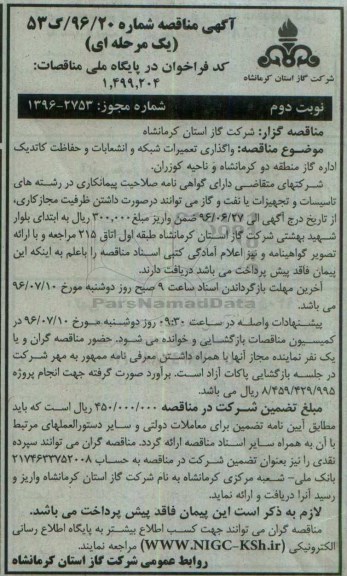 آگهی مناقصه شماره ۹۶/۲۰/گ۵۳
(یک مرحله ای)
کد فراخوان در پایگاه ملی مناقصات:
۱,۴۹۹,۲۰۴
شرکت گاز استان کرمانشاه
نوبت دوم
شماره مجوز: ۲۷۵۳-۱۳۹۶
مناقصه گزار: شرکت گاز استان کرمانشاه
موضوع مناقصه: واگذاری تعمیرات شبکه و انشعابات و حفاظت کاتدیک
اداره گاز منطقه دو کرمانشاه و ناحیه کوزران.
شرکتهای متقاضی دارای گواهی نامه صلاحیت پیمانکاری در رشته های
تاسیسات و تجهیزات یا نفت و گاز می توانند درصورت داشتن ظرفیت مجازکاری،
از تاریخ درج آگهی الی ۹۶/۰۶/۲۷ ضمن واریز مبلغ ۳۰۰,۰۰۰ ریال به ابتدای بلوار
شهید بهشتی شرکت گاز استان کرمانشاه طبقه اول اتاق ۲۱۵ مراجعه و با ارائه
تصویر گواهینامه و نیز اعلام آمادگی کتبی اسناد مناقصه را باعلم به اینکه این
پیمان فاقد پیش پرداخت می باشد دریافت دارند.
آخرین مهلت بازگرداندن اسناد ساعت ۹ صبح روز دوشنبه مورخ ۹۶/۰۷/۱۰
می باشد.
ParsNamadData
پیشنهادات واصله در ساعت ۰۹:۳۰ روز دوشنبه مورخ ۹۶/۰۷/۱۰ در
کمیسیون مناقصات بازگشایی و خوانده می شود. حضور مناقصه گران و یا
یک نفر نماینده مجاز آنها با همراه داشتن معرفی نامه ممهور به مهر شرکت
در جلسه بازگشایی پاکات آزاد است. برآورد صورت گرفته جهت انجام پروژه
۸/۴۵۹/۴۲۹/۹۹۵ ریال می باشد.
مبلغ تضمین شرکت در مناقصه ۴۵۰/۰۰۰/۰۰۰ ریال است که باید
مطابق آیین نامه تضمین برای معاملات دولتی و سایر دستورالعملهای مرتبط
با آن به همراه سایر اسناد مناقصه ارائه گردد. مناقصه گران می توانند سپرده
نقدی را نیز بعنوان تضمین شرکت در مناقصه به حساب ۲۱۷۴۶۳۳۷۵۲۰۰۸
بانک ملی- شعبه مرکزی کرمانشاه به نام شرکت گاز استان کرمانشاه واریز و
رسید آنرا دریافت و ارائه نماید.
لازم به ذکر است این پیمان فاقد پیش پرداخت می باشد.
مناقصه گران می توانند جهت کسب اطلاع بیشتر به پایگاه اطلاع رسانی
الکترونیکی (WWW.NIGC-KSh.ir) مراجعه نمایند.
روابط عمومی شرکت گاز استان کرمانشاه